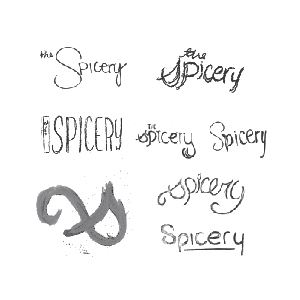 the Spicery
the Spicery
THE SPICERY
the Spicery
Spicery
S
Spicery
Spicery